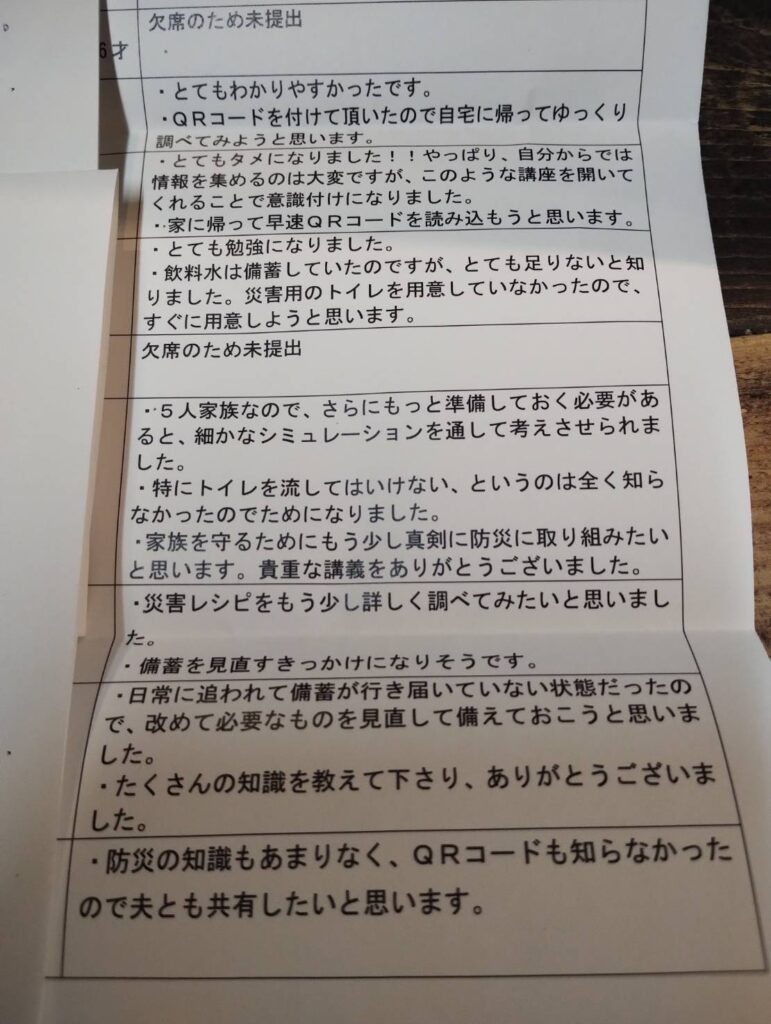 欠席のため未提出
6才
・とてもわかりやすかったです。
・QRコードを付けて頂いたので自宅に帰ってゆっくり
調べてみようと思います。
・とてもタメになりました!!やっぱり、自分からでは
情報を集めるのは大変ですが、このような講座を開いて
くれることで意識付けになりました。
・家に帰って早速QRコードを読み込もうと思います。
・とても勉強になりました。
・飲料水は備蓄していたのですが、とても足りないと知
りました。災害用のトイレを用意していなかったので、
すぐに用意しようと思います。
欠席のため未提出
・5人家族なので、さらにもっと準備しておく必要があ
ると、細かなシミュレーションを通して考えさせられま
した。
・特にトイレを流してはいけない、というのは全く知ら
なかったのでためになりました。
・家族を守るためにもう少し真剣に防災に取り組みたい
と思います。貴重な講義をありがとうございました。
・災害レシピをもう少し詳しく調べてみたいと思いまし
た。
・備蓄を見直すきっかけになりそうです。
・日常に追われて備蓄が行き届いていない状態だったの
で、改めて必要なものを見直して備えておこうと思いま
した。
・たくさんの知識を教えて下さり、ありがとうございま
した。
・防災の知識もあまりなく、QRコードも知らなかった
ので夫とも共有したいと思います。